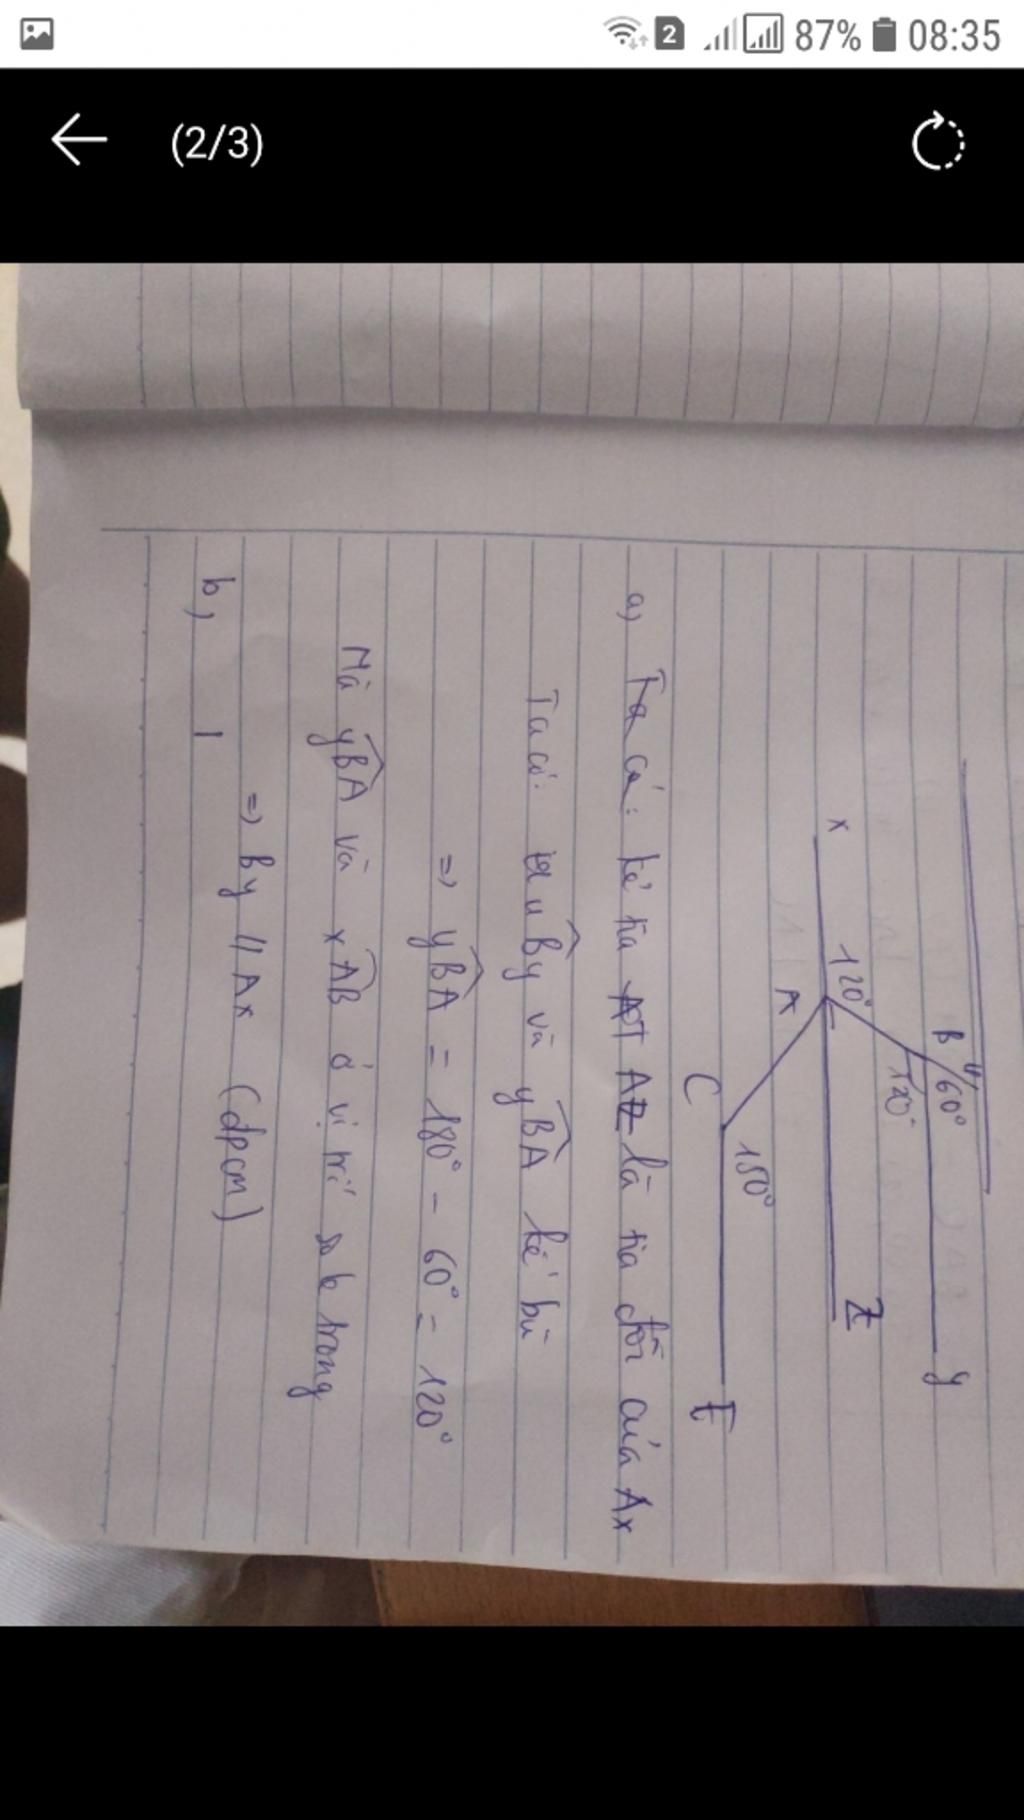 2 87% 08:35
(2/3)
B u 60° y
120°
x 120° Z
A
C 150° E
a) Ta có: kẻ tia AZ là tia đối của Ax
Ta có: uBy và yBA kề bù
=> yBA = 180° - 60° = 120°
Mà yBA và xAB ở vị trí so le trong
=> By // Ax (đpcm)
b,